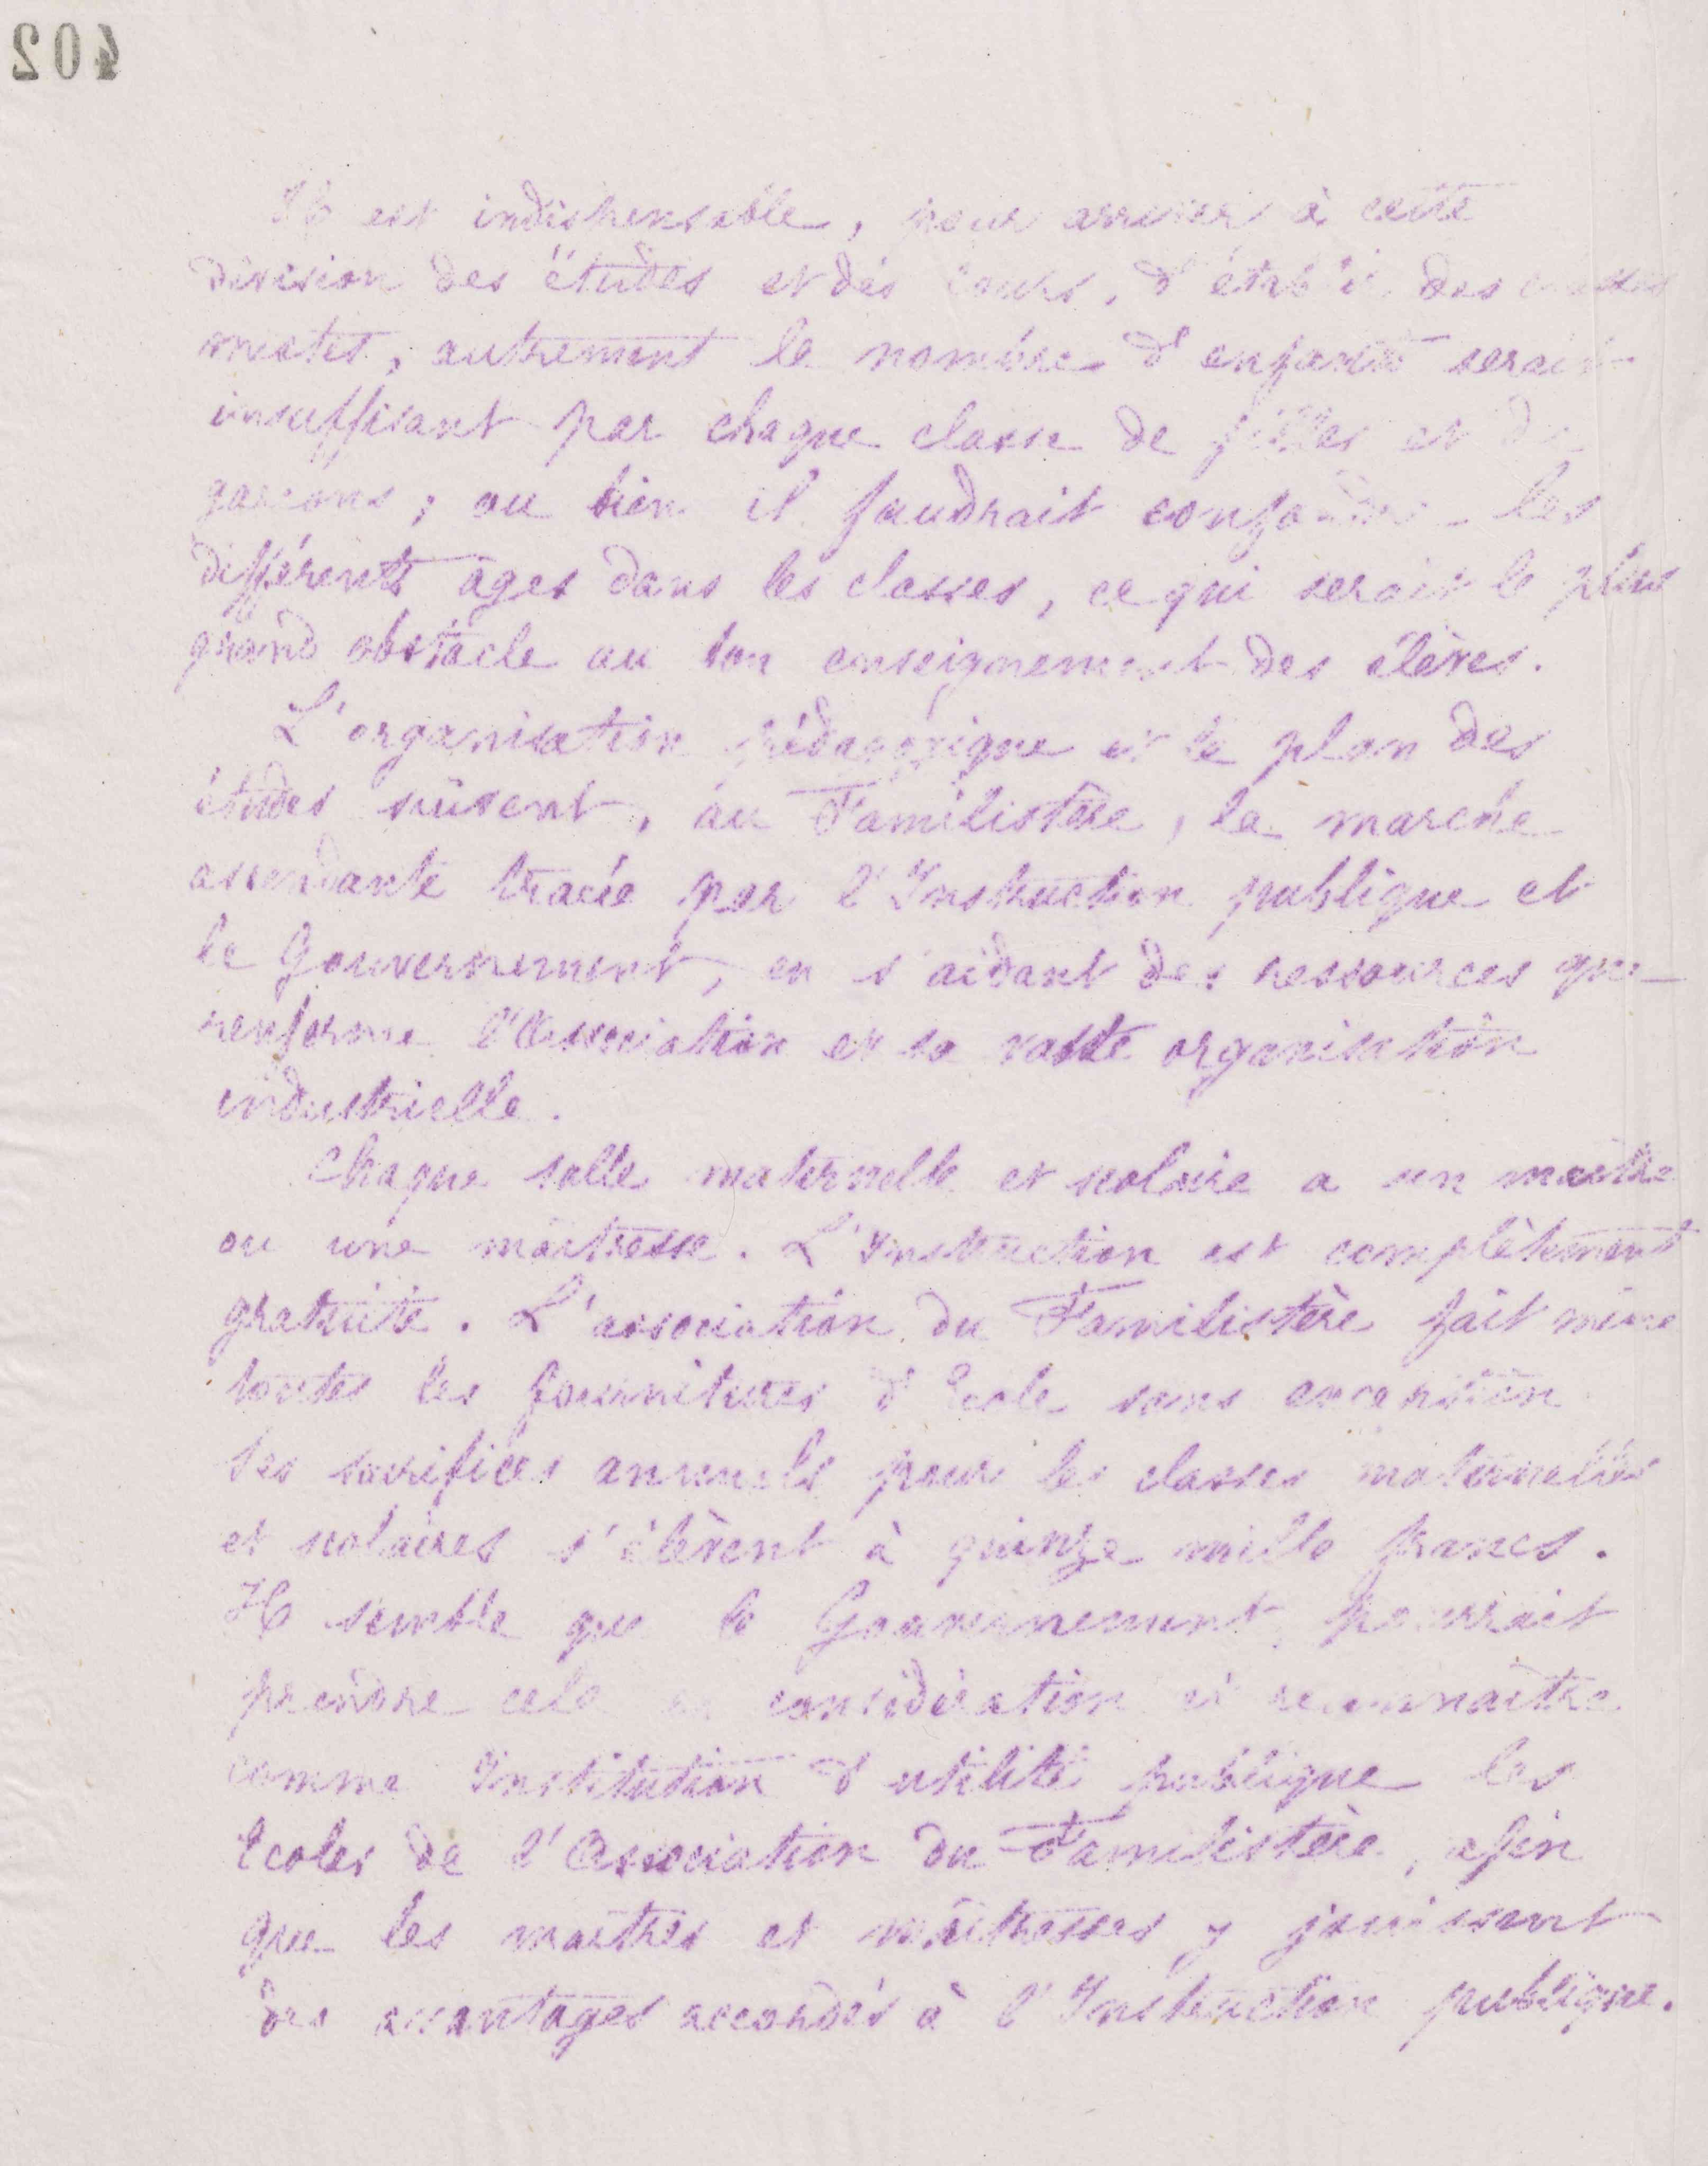 402
Il est indispensable, pour arriver à cette
division des études et des cours, d'établir des classes
mixtes, autrement le nombre d'enfants serait
insuffisant par chaque classe de filles et de
garçons; ou bien il faudrait confondre les
différents âges dans les classes, ce qui serait le plus
grand obstacle au bon enseignement des élèves.
L'organisation pédagogique et le plan des
études suivent, au Familistère, la marche
ascendante tracée par l'Instruction publique et
le Gouvernement, en s'aidant des ressources que
renferme l'Association et sa vaste organisation
industrielle.
Chaque salle maternelle et scolaire a un maître
ou une maîtresse. L'Instruction est complètement
gratuite. L'association du Familistère fait même
toutes les fournitures d'Ecole sans exception
Ses sacrifices annuels pour les classes maternelles
et scolaires s'élèvent à quinze mille francs.
Il semble que le Gouvernement pourrait
prendre cela en considération et reconnaître
comme Institution d'utilité publique les
Ecoles de l'Association du Familistère, afin
que les maîtres et maîtresses y jouissent
des avantages accordés à l'Instruction publique.